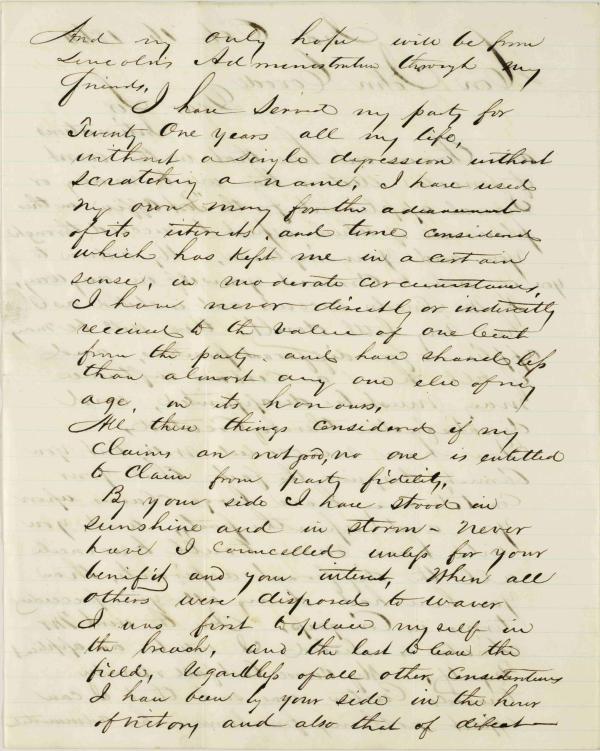 And my only hope will be from
Lincolns Administration through my
friends.
I have served my party for
Twenty One years all my life,
without a single depression without
scratching a name. I have used
my own money for the advancement
of its interests, and time considered
which has kept me in a certain
sense, in moderate circumstances,
I have never directly or indirectly
received to the value of one Cent
from the party, and have shared less
than almost any one else of my
age, in its honours.
All these things considered if my
Claims are not good, no one is entitled
to Claim from party fidelity.
By your side I have stood in
sunshine and in storm - never
have I councelled unless for your
benifit and your interest, When all
others were disposed to waver
I was first to place myself in
the breach, and the last to leave the
field, regardless of all other Considerations
I have been by your side in the hour
of victory and also that of defeat